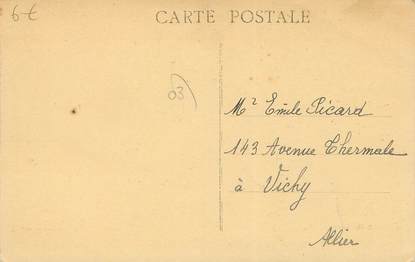 6€
CARTE POSTALE
03
Mr Emile Picard
143 Avenue Thermale
à Vichy
Allier